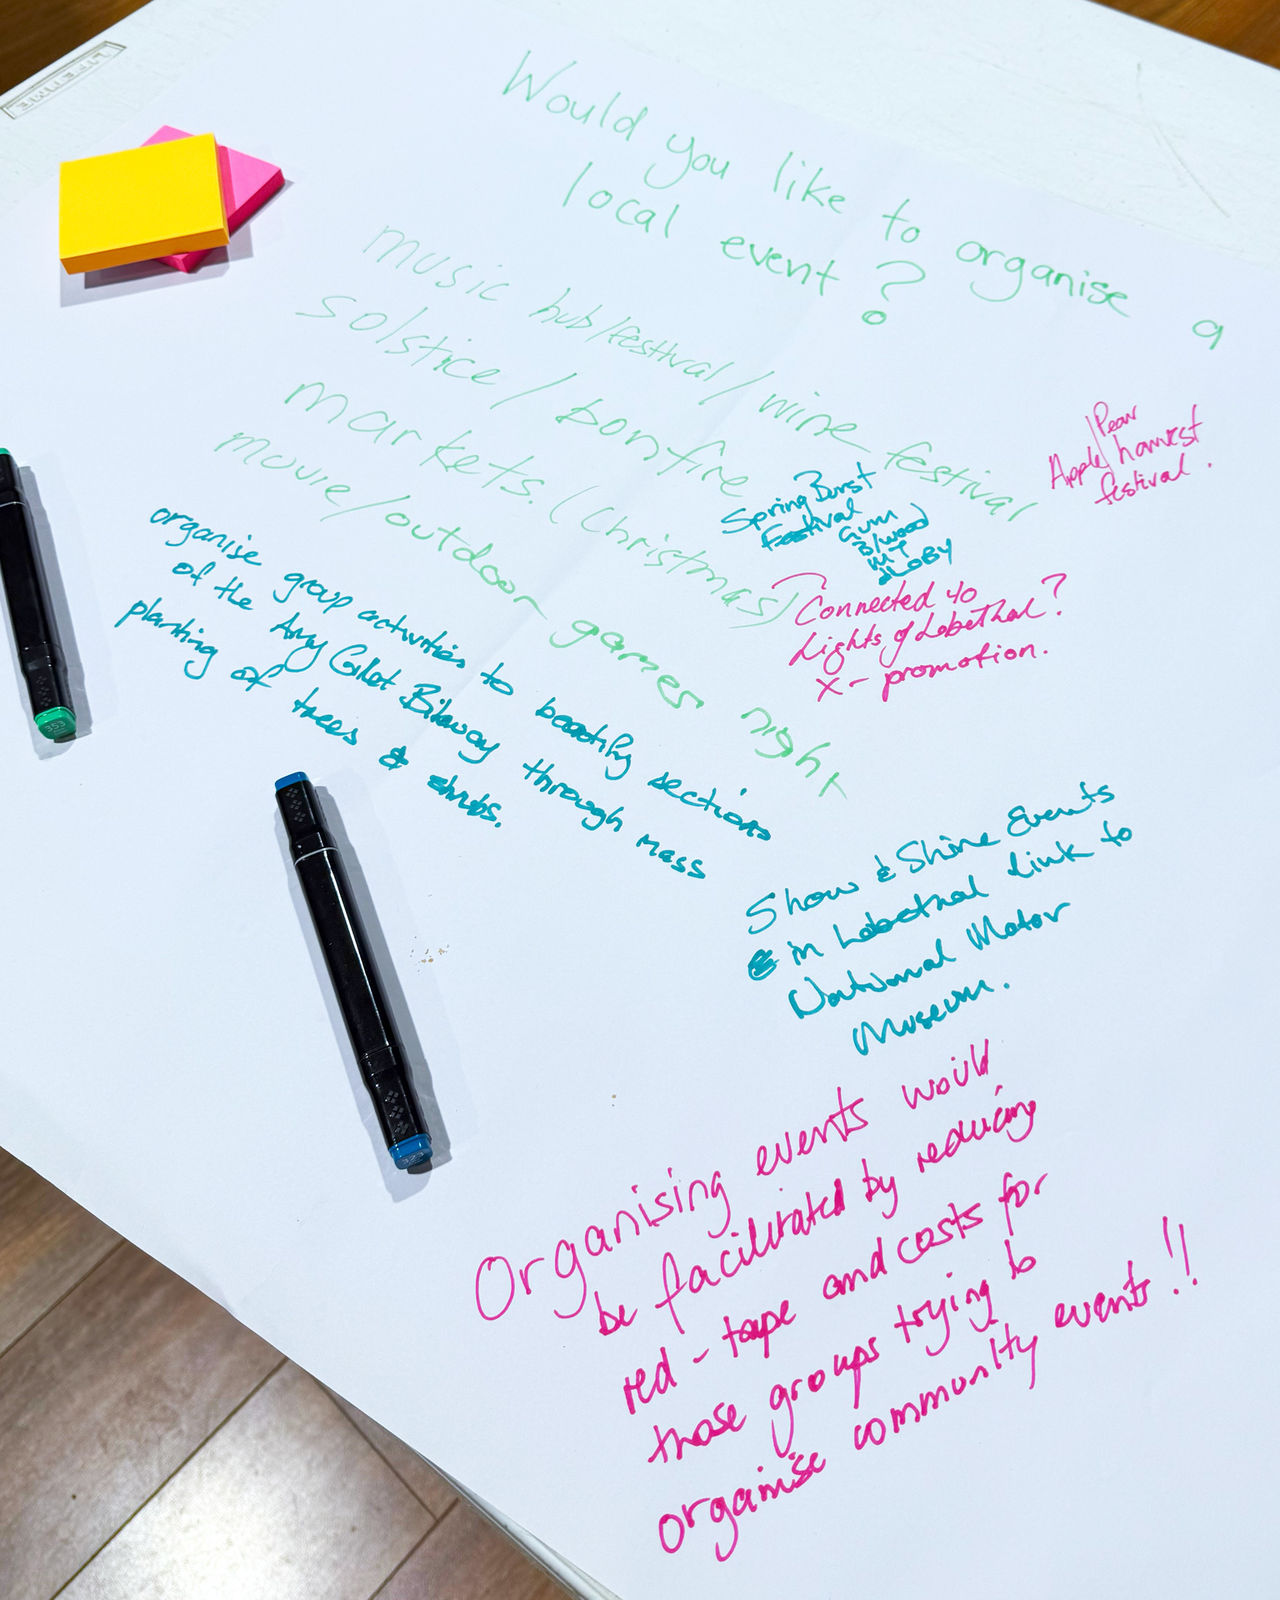 LIFETIME
Would you like to organise a
local event?
music hub/festival/wine festival
solstice/bonfire
markets. (Christmas)
movie/outdoor games night
Apple/Pear
harvest
festival.
Spring Burst
Festival
Gum
B/wood
MT
Connected to
Lights of Lobethal?
x-promotion.
organise group activities to beautify sections
of the Amy Gillet Bikeway through mass
planting of trees & shrubs.
Show & Shine Events
in Lobethal link to
National Motor
Museum.
Organising events would
be facilitated by reducing
red-tape and costs for
those groups trying to
organise community events!!
353
323